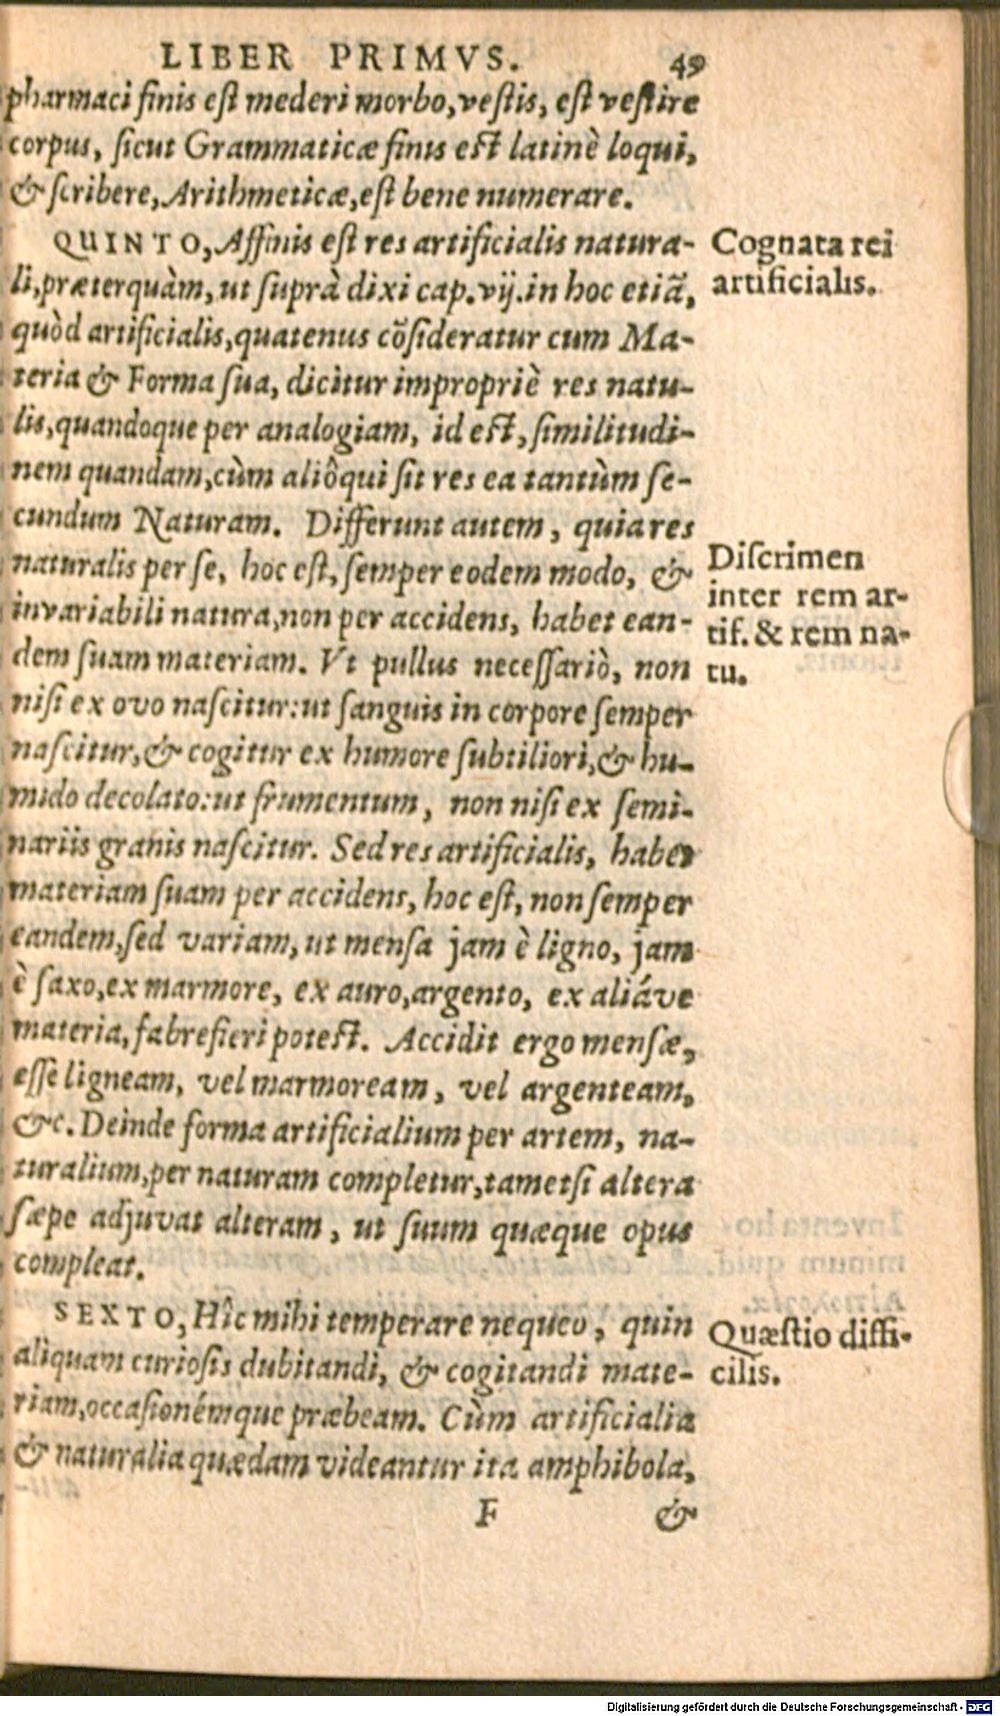 LIBER PRIMVS. 49
pharmaci finis eſt mederi morbo, veſtis, eſt veſtire
corpus, ſicut Grammaticæ finis eſt latinè loqui,
& ſcribere, Arithmeticæ, eſt bene numerare.
QUINTO, Affinis eſt res artificialis natura-
li, præterquàm, ut ſuprà dixi cap. vij. in hoc etiã,
quòd artificialis, quatenus cõſideratur cum Ma-
teria & Forma ſua, dicitur impropriè res natu-
lis, quandoque per analogiam, id eſt, ſimilitudi-
nem quandam, cùm aliôqui ſit res ea tantùm ſe-
cundum Naturam. Differunt autem, quia res
naturalis per ſe, hoc eſt, ſemper eodem modo, &
invariabili natura, non per accidens, habet ean-
dem ſuam materiam. Vt pullus neceſſariò, non
niſi ex ovo naſcitur: ut ſanguis in corpore ſemper
naſcitur, & cogitur ex humore ſubtiliori, & hu-
mido decolato: ut frumentum, non niſi ex ſemi-
nariis granis naſcitur. Sed res artificialis, habet
materiam ſuam per accidens, hoc eſt, non ſemper
eandem, ſed variam, ut menſa jam è ligno, jam
è ſaxo, ex marmore, ex auro, argento, ex aliáve
materia, fabrefieri poteſt. Accidit ergo menſæ,
eſſe ligneam, vel marmoream, vel argenteam,
&c. Deinde forma artificialium per artem, na-
turalium, per naturam completur, tametſi altera
ſæpe adjuvat alteram, ut ſuum quæque opus
compleat.
SEXTO, Hîc mihi temperare nequeo, quin
aliquam curioſis dubitandi, & cogitandi mate-
riam, occaſionémque præbeam. Cùm artificialia
& naturalia quædam videantur ita amphibola,
F &
Cognata rei
artificialis.
Diſcrimen
inter rem ar-
tif. & rem na-
tu.
Quæſtio diffi-
cilis.
Digitalisierung gefördert durch die Deutsche Forschungsgemeinschaft - DFG